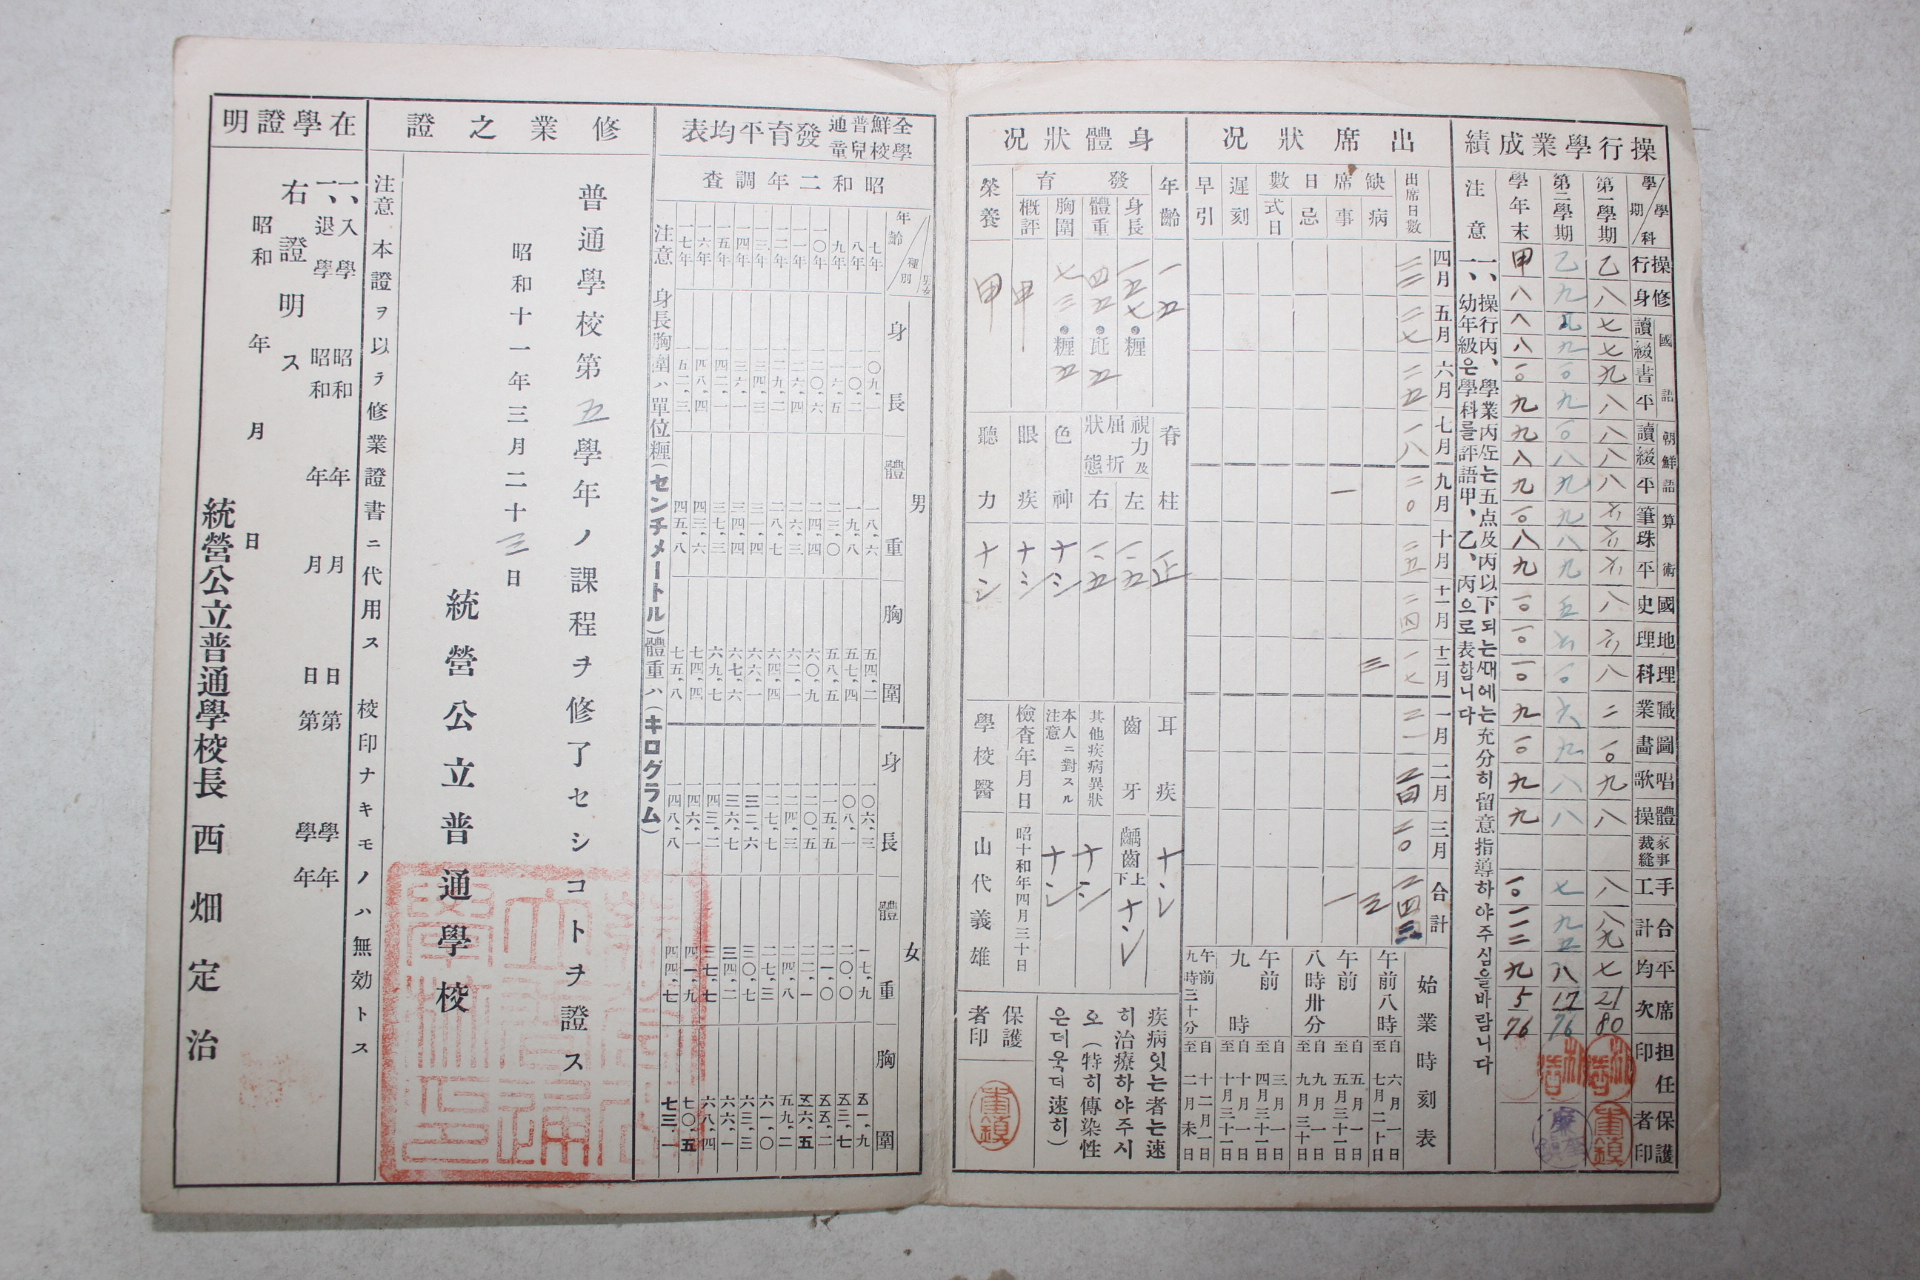 操行學業成績
學期／學科
操行
修身
國語
讀
綴
書
平
朝鮮語
讀
綴
平
算術
筆
珠
平
國史
地理
理科
職業
圖畫
唱歌
體操
家事裁縫
手工
合計
平均
席次
担任印
保護者印
第一學期
乙 八 七 七 九 八 八 八 八
第二學期
學年末
甲 八 八 八 一〇 九 九 八 九 一〇 八 九 一〇 一〇 一〇 九 一〇 九 九 一〇 一一二 九
5
76
21
80
注意
一、操行丙、學業丙또는五点及丙以下되는때에는充分히留意指導하야주심을바람니다
一、幼年級은學科를評語甲、乙、丙으로表합니다
出席狀況
出席日數
缺席日數
病
事
忌
式日
遲刻
早引
四月
五月 二七
六月 二五
七月 一八
九月 二〇 一
十月 二五
十一月 二四
十二月 一七 三
一月 二一
二月 二四
三月 二〇
合計 三 一
始業時刻表
午前八時 自六月一日 至七月二十日
午前八時卅分 自五月一日 至五月三十一日 自九月一日 至九月三十日
午前九時 自三月一日 至四月三十日 自十月一日 至十月三十一日
午前九時三十分 自十一月一日 至二月末日
身體狀況
年齡 一五
發育
身長 一五七・糎
體重 四五・瓩五
胸圍 七三・糎五
概評 甲
榮養 甲
脊柱 正
視力及屈折狀態
左 一・五
右 一・五
色神 ナシ
眼疾 ナシ
聽力 ナシ
耳疾 ナシ
齒牙 齲齒上下 ナシ
其他疾病異狀 ナシ
本人ニ對スル注意 ナシ
檢査年月日 昭和十年四月三十日
學校醫 山代義雄
疾病잇는者는速히治療하야주시오(特히傳染性은더욱더速히)
保護者印
全鮮普通學校兒童發育平均表
昭和二年調査
年齡／種別／男女
男
身長
體重
胸圍
女
身長
體重
胸圍
七年 一〇九・一 一八・六 五四・二 一〇六・三 一七・九 五一・九
八年 一一〇・二 一九・八 五七・四 一〇八・一 二〇・〇 五三・七
九年 一一六・五 二三・〇 五八・五 一一五・五 二一・〇 五五・二
一〇年 一二〇・六 二四・四 六〇・九 一二〇・五 二二・一 五六・五
一一年 一二六・四 二六・三 六二・一 一二四・三 二四・八 五九・二
一二年 一二九・二 二八・七 六四・四 一二七・七 二七・三 六一・〇
一三年 一三四・三 三一・四 六六・一 一三二・六 三〇・七 六三・三
一四年 一三六・一 三四・四 六七・六 一三六・七 三四・二 六六・一
一五年 一四二・一 三七・三 六九・七 一四三・二 三七・七 六八・四
一六年 一四八・四 四三・六 七四・四 一四六・一 四一・九 七〇・五
一七年 一五二・三 四五・八 七五・八 一四八・八 四四・七 七三・一
注意 身長胸圍ハ單位糎(センチメートル)體重ハ(キログラム)
修業之證
普通學校第五學年ノ課程ヲ修了セシコトヲ證ス
昭和十一年三月二十三日
統營公立普通學校
注意 本證ヲ以テ修業證書ニ代用ス 校印ナキモノハ無効トス
在學證明
一、入學 昭和 年 月 日 第 學年
一、退學 昭和 年 月 日 第 學年
右證明ス
昭和 年 月 日
統營公立普通學校長 西畑定治